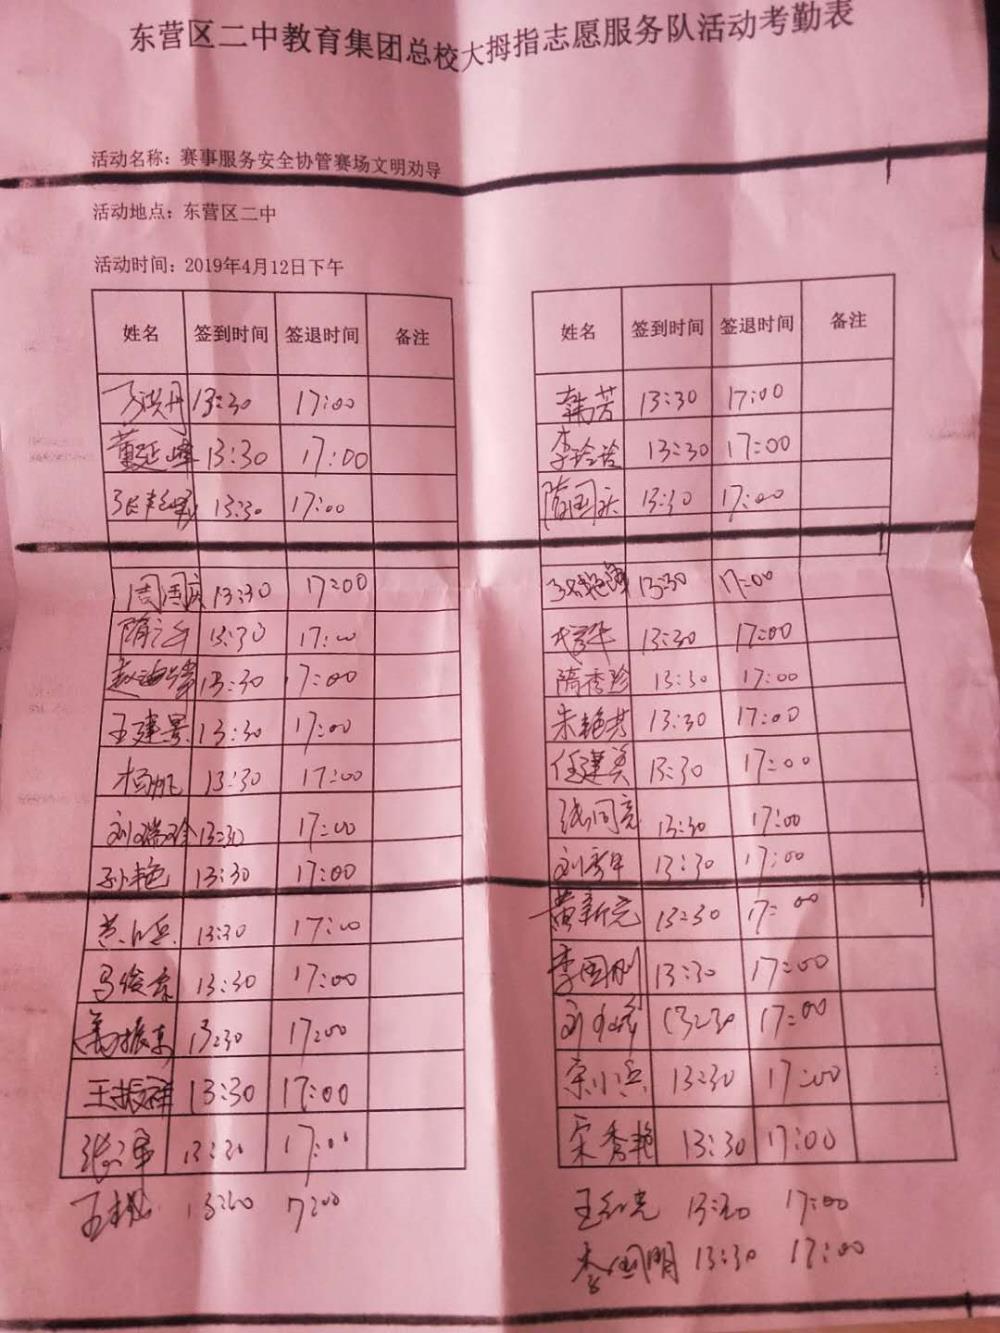 东营区二中教育集团总校大拇指志愿服务队活动考勤表
活动名称：赛事服务安全协管赛场文明劝导
活动地点：东营区二中
活动时间：2019年4月12日下午
姓名 签到时间 签退时间 备注
13:30 17:00
董延峰 13:30 17:00
13:30 17:00
周国庆 13:30 17:00
13:30 17:00
赵海峰 13:30 17:00
王建景 13:30 17:00
杨帆 13:30 17:00
刘瑞珍 13:30 17:00
孙艳 13:30 17:00
13:30 17:00
13:30 17:00
13:30 17:00
王振祥 13:30 17:00
张军 13:30 17:00
姓名 签到时间 签退时间 备注
韩芳 13:30 17:00
13:30 17:00
隋国庆 13:30 17:00
13:30 17:00
13:30 17:00
隋秀珍 13:30 17:00
朱艳芳 13:30 17:00
任建英 13:30 17:00
张同亮 13:30 17:00
13:30 17:00
黄新亮 13:30 17:00
李国刚 13:30 17:00
13:30 17:00
宋小兵 13:30 17:00
宋秀艳 13:30 17:00
王红亮 13:30 17:00
李国明 13:30 17:00